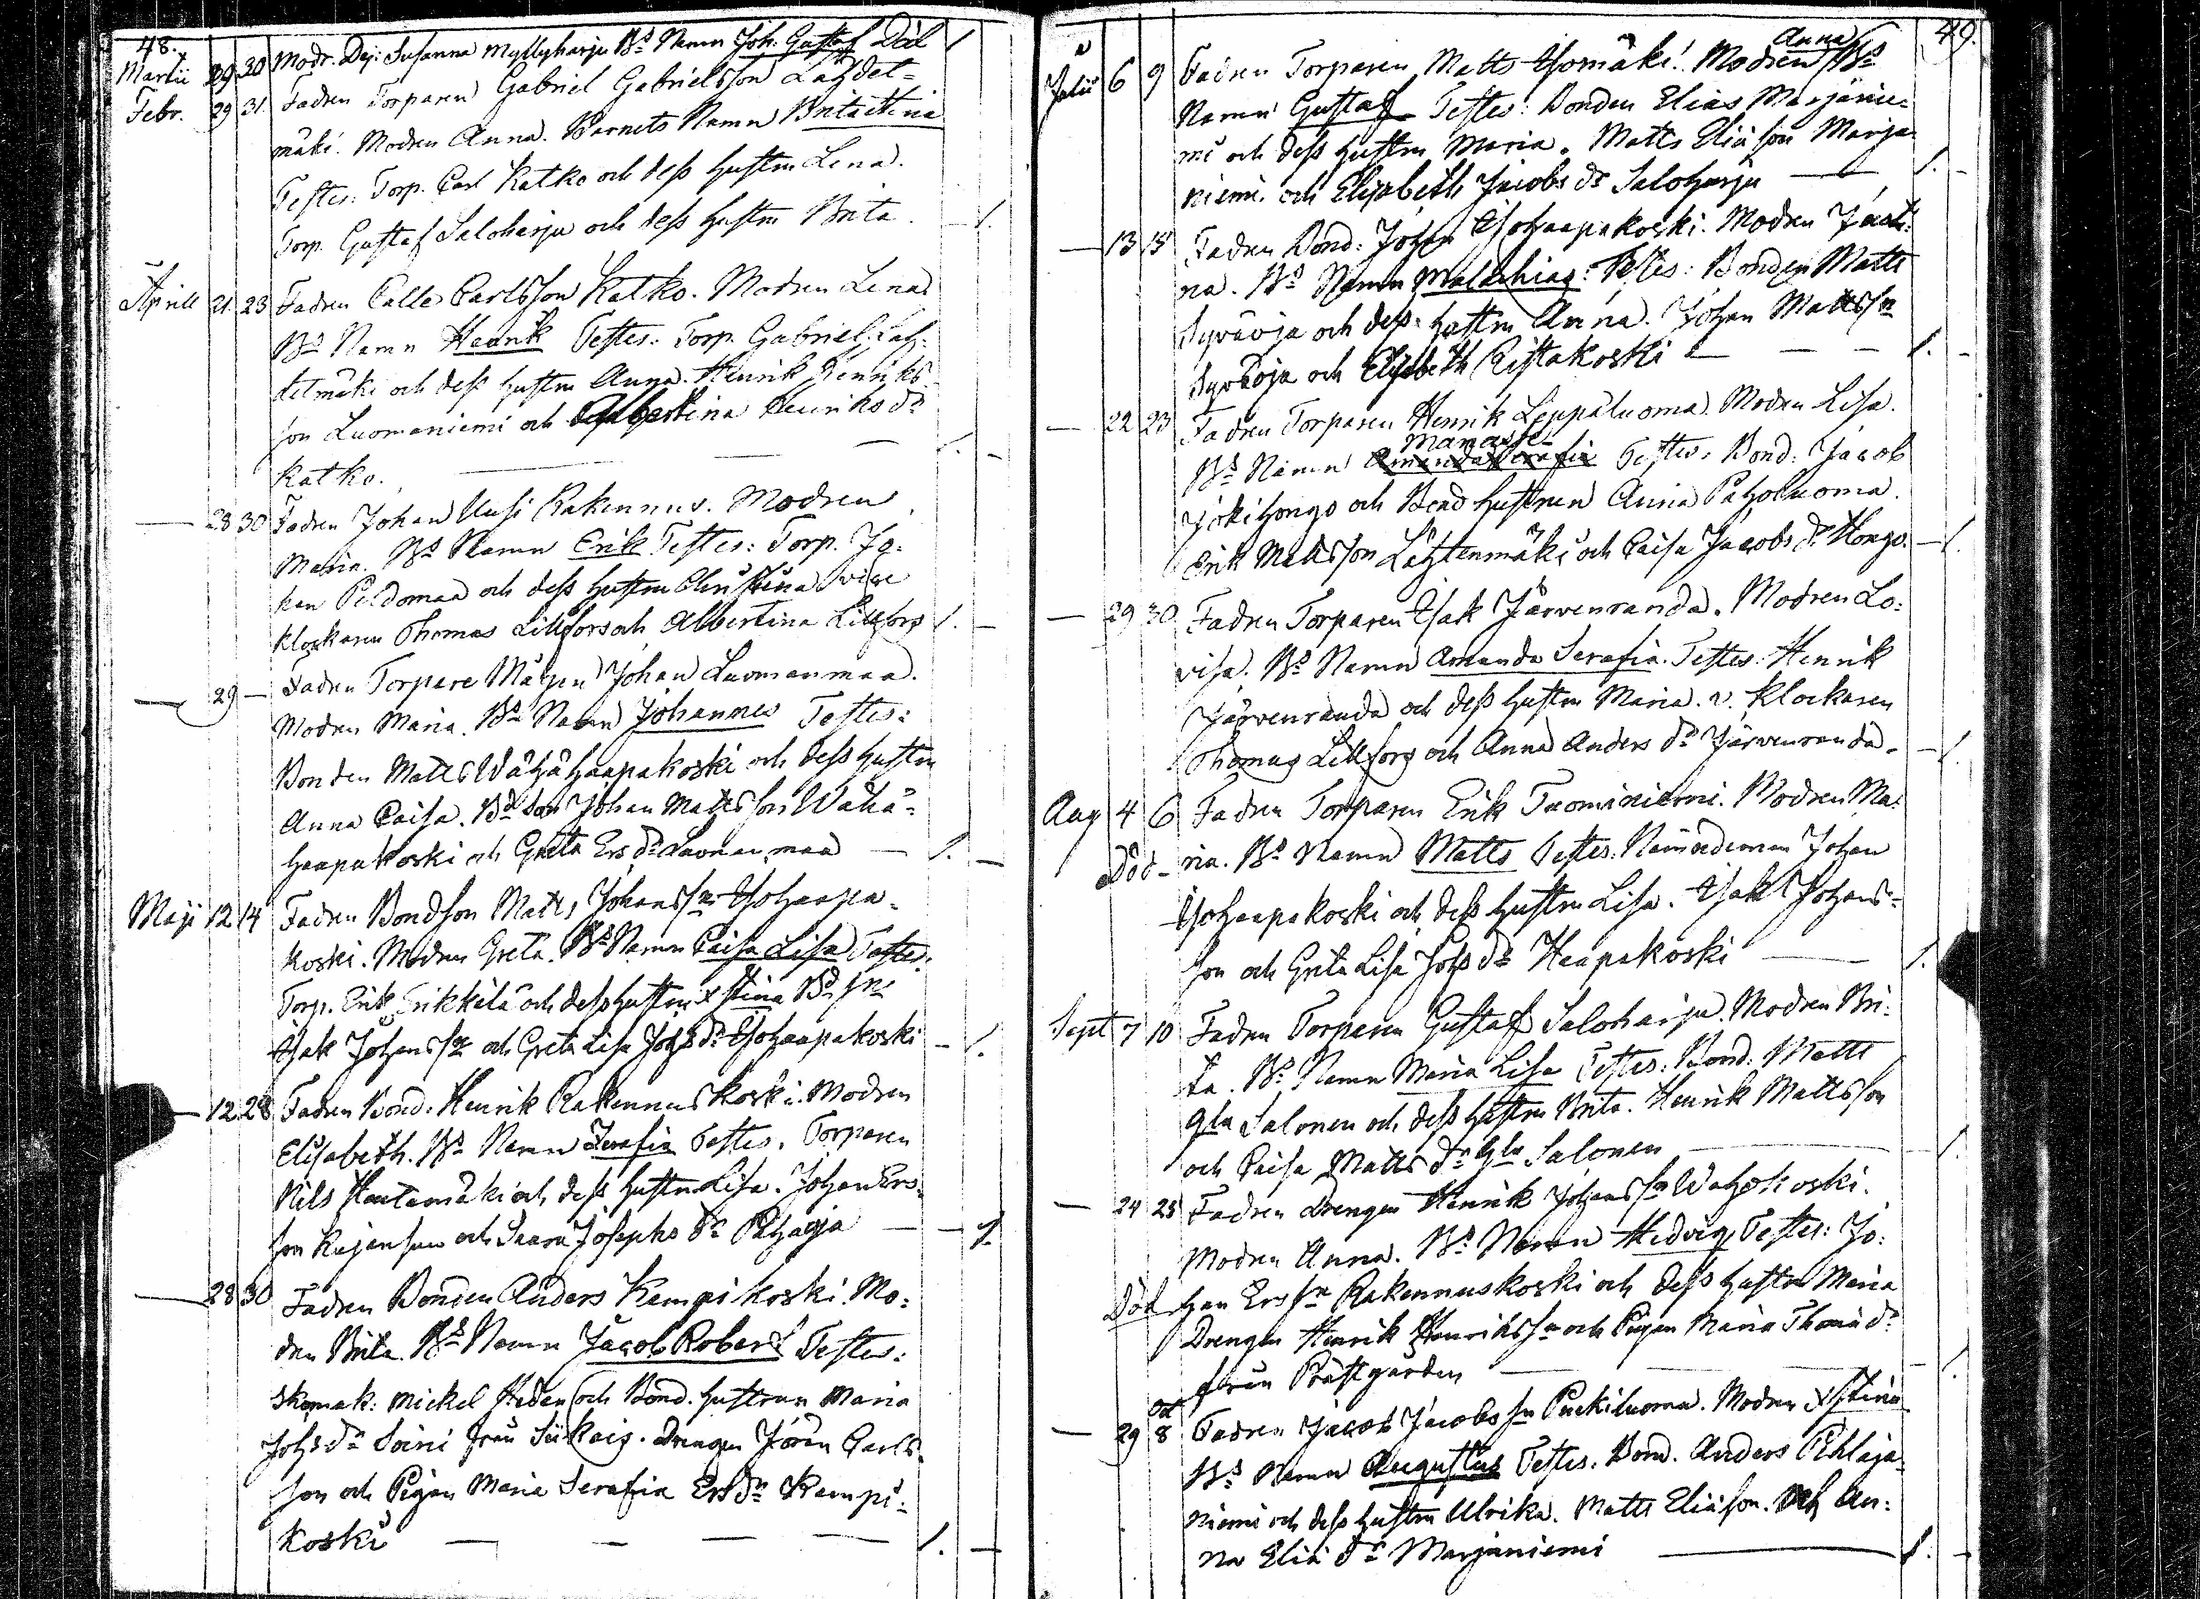 48.
Martii 29 30 Modr. Dej: Susanna Myllyharju Bs Namn Joh. Gustaf Död 1
Febr. 29 31. Fadren Torparen Gabriel Gabrielsson Lahdet=
mäki. Modren Anna. Barnets Namn Brita Stina
Testes: Torp. Carl Katko och dess hustru Lena.
Torp. Gustaf Saloharju och dess hustru Brita. — 1.
Aprill 21. 23 Fadren Calle Carlsson Katko. Modren Lena
Bs Namn Henrik Testes: Torp. Gabriel Lah=
detmäki och dess hustru Anna. Henrik Henriks
son Luomaniemi och Albertina Henriks dr
Katko. — — 1. —
— 28 30 Fadren Johan Uusi Rakennus. Modren
Maria. Bs Namn Erik Testes: Torp. Jo=
han Peldomaa och dess hustru Christina vice
klockaren Thomas Lillfors och Albertina Lillfors 1. —
— 29 — Fadren Torpare Mågen Johan Luomanmaa.
Modren Maria. Bs Namn Johannes Testes:
Bonden Matts Wähä Haapakoski och dess hustru
Anna Caisa. Bd son Johan Mattsson Wähä=
haapakoski och Greta Ers dr Luomanmaa — 1. —
Maji 12 14 Fadren Bondson Matts Johanssn Isohaapa=
koski. Modren Greta. Bs Namn Caisa Lisa Testes:
Torp. Erik Erikkilä och dess hustru Xstina Bd sn
Isak Johanssn och Greta Lisa Johs dr Isohaapakoski — 1.
— 12 28 Fadren Bond: Henrik Rakennuskoski. Modren
Elisabeth. Bs Namn Serafia Testes. Torparen
Nils Hautamäki och dess hustru Lisa. Johan Ers=
son och Saara Josephs dr — 1.
— 28 30 Fadren Bonden Anders Kampikoski. Mo=
dren Brita. Bs Namn Jacob Robert Testes:
Skomak: Mickel Heden och Bond. hustrun Maria
Johs dr Soini från Siikais. drengen Carls=
son och Pigan Maria Serafia Ers dr Kampi=
koski — — — 1. —
49.
Anna
Julii 6 9 Fadren Torparen Matts Isomäki. Modren Bs
Namn Gustaf Testes: Bonden Elias Marjanie=
mi och dess hustru Maria. Matts Elia son Marja
niemi och Elisabeth Jacobs dr Saloharju — 1. —
— 13 15 Fadren Bond: Johan Isohaapakoski. Modren
na. Bs Namn Malachias: Testes: Bonden Matts
Syväoja och dess hustru Anna. Johan Mattssn
Syväoja och Elisabeth Ristakoski — — — 1. —
— 22 23 Fadren Torparen Henrik Leppäluoma. Modren Lisa.
Manasse
Bs Namn Amanda Serafia Testes. Bond: Jacob
Jokihongo och Bond hustrun Anna Paholuoma.
Erik Mattsson Lähtenmäki och Caisa Jacobs dr Hongo. — 1.
— 29 30 Fadren Torparen Isak Järvenranda. Modren Lo=
visa. Bs Namn Amanda Serafia. Testes: Henrik
Järvenranda och dess hustru Maria. v. Klockaren
Thomas Lillfors och Anna Anders dr Järvenranda. — 1.
Aug 4 6 Fadren Torparen Erik Tuominiemi. Modren Ma=
Död — ria. Bs Namn Matts Testes: Nämndeman Johan
Isohaapakoski och dess hustru Lisa. Isak Johans=
son och Greta Lisa Johs dr Haapakoski — 1.
Sept 7 10 Fadren Torparen Gustaf Saloharju. Modren Bri=
ta. Bs Namn Maria Lisa Testes: Bond: Matts
Gla Salonen och dess hustru Brita. Henrik Mattsson
och Caisa Matts dr Gla Salonen — 1.
— 24 25 Fadren drengen Henrik Johanssn Wahokoski.
Modren Anna. Bs Namn Hedvig Testes: Jo=
Död han Erssn Rakennuskoski och dess hustru Maria
Drengen Henrik Henrikssn och Pigan Maria Thomä dr
från Prästgården — — — 1.
Oct
— 29 8 Fadren Jacob Jacobssn Puckiluoma. Modren Xstina
Bs Namn Augustus Testes. Bond. Anders Pihlaja=
niemi och dess hustru Ulrika. Matts Elia son. och An=
na Elia dr Marjaniemi — 1. —